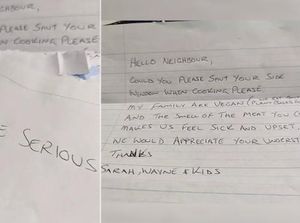 GHBOUR,
PLEASE SHUT YOUR
WHEN COOKING PLEASE
E SERIOUS
HELLO NEIGHBOUR,
COULD YOU PLEASE SHUT YOUR SIDE
WINDOW WHEN COOKING PLEASE.
MY FAMILY ARE VEGAN
AND THE SMELL OF THE MEAT YOU
MAKES US FEEL SICK AND UPSET.
WE WOULD APPRECIATE YOUR UNDERST
THANKS
SARAH, WAYNE & KIDS